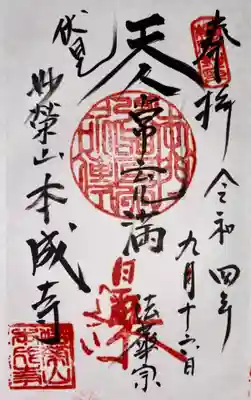 奉拝 令和四年
九月十六日
天人常充満
法華宗
伏見
妙榮山本成寺